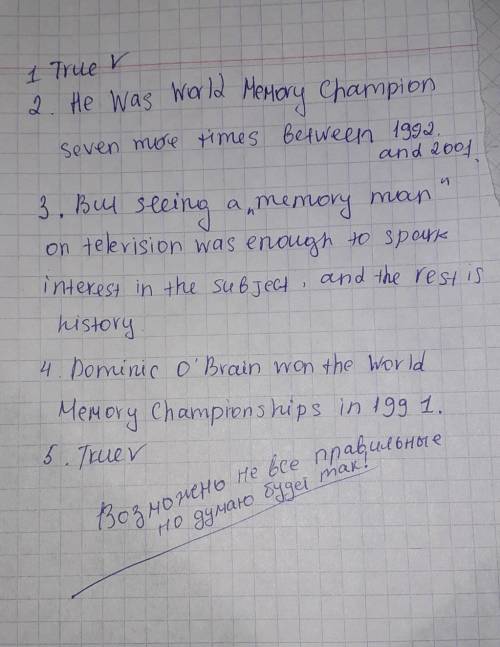 1 True ✓
2. He Was World Memory Champion
seven more times between 1992.
and 2001.
3. But seeing a „memory man"
on television was enough to spark
interest in the subject, and the rest is
history.
4. Dominic O'Brain won the World
Memory Championships in 1991.
5. True ✓
Возможено не все правильные
но думаю будет так!